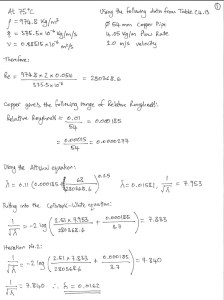 ①
At 75°C
ρ = 974.8 kg/m³
η = 375.5 × 10⁻⁶ kg/ms
Using the following data from Table 2.4.13
Ø 54 mm Copper Pipe
4.05 kg/m Flow Rate
2.0 m/s velocity
Therefore:
Re = 974.8 × 2 × 0.054 / 375.5 × 10⁻⁶ = 280368.6
Copper gives the following range of Relative Roughness:
Relative Roughness = 0.01 / 54 = 0.000185
= 0.00015 / 54 = 0.00000277
Using the Altshul equation:
λ = 0.11 (0.000185 + 68 / 280368.6)^0.25 λ = 0.01581, 1/√λ = 7.953
Putting into the Colebrook-White equation:
1/√λ = -2 log (2.51 × 7.953 / 280368.6 + 0.000185 / 3.7) = 7.833
Iteration No.2:
1/√λ = -2 log (2.51 × 7.833 / 280368.6 + 0.000185 / 3.7) = 7.840
1/√λ = 7.840 ∴ λ = 0.0162